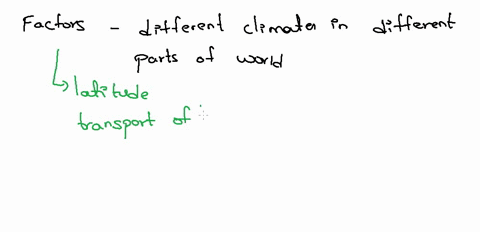 Factors - different climates in different
parts of world
latitude
transport of